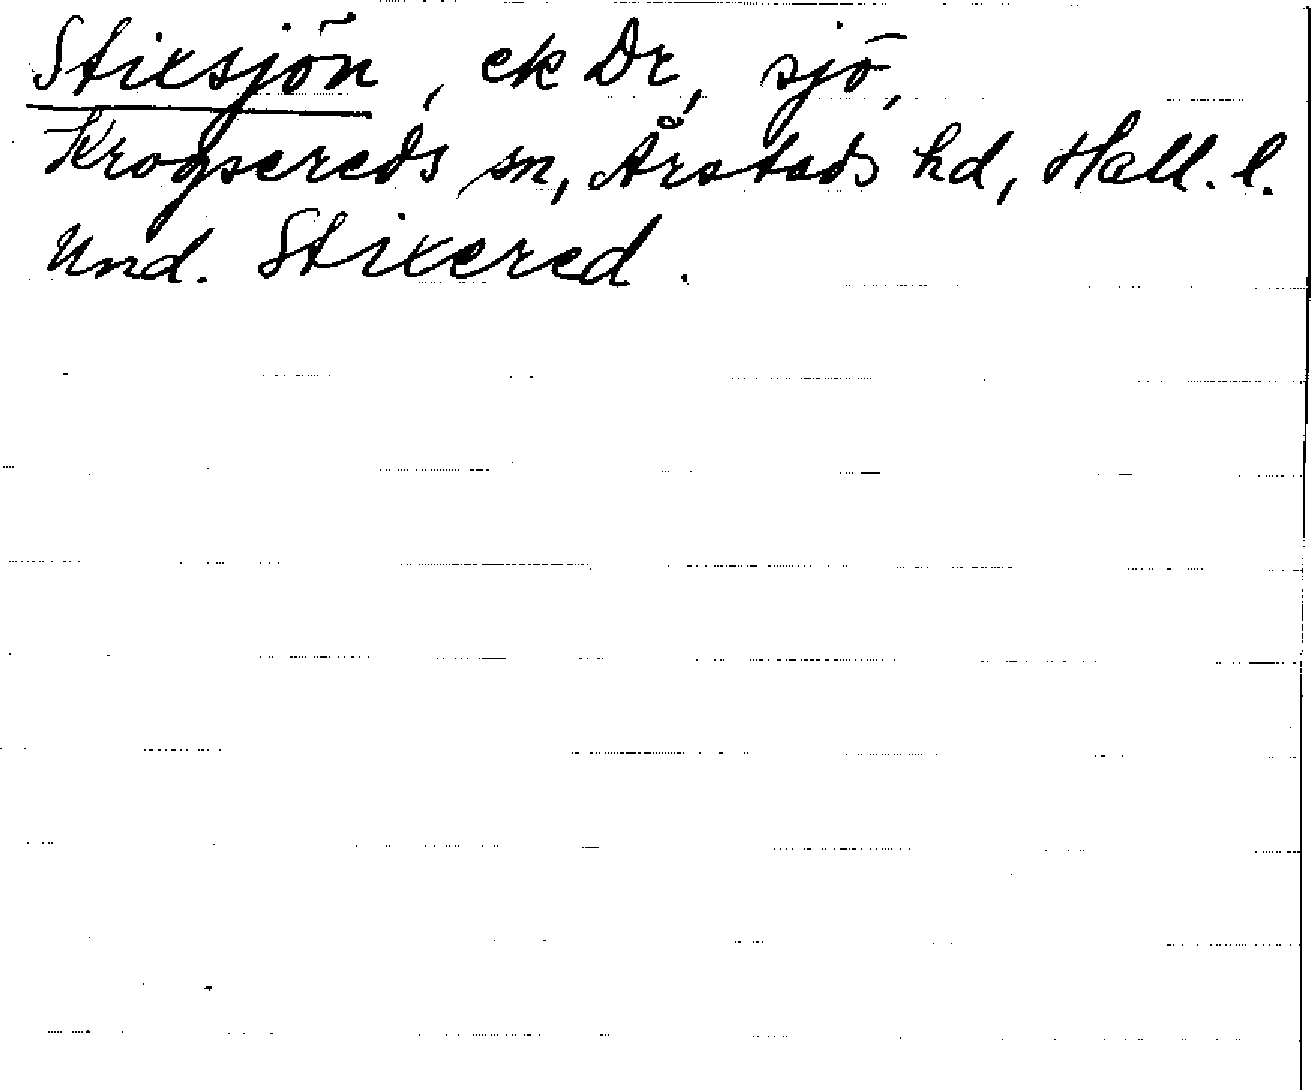 Stixsjön, ek Dr, sjö,
Krogsereds sn, Årstads hd, Hall. l.
Und. Stixered.